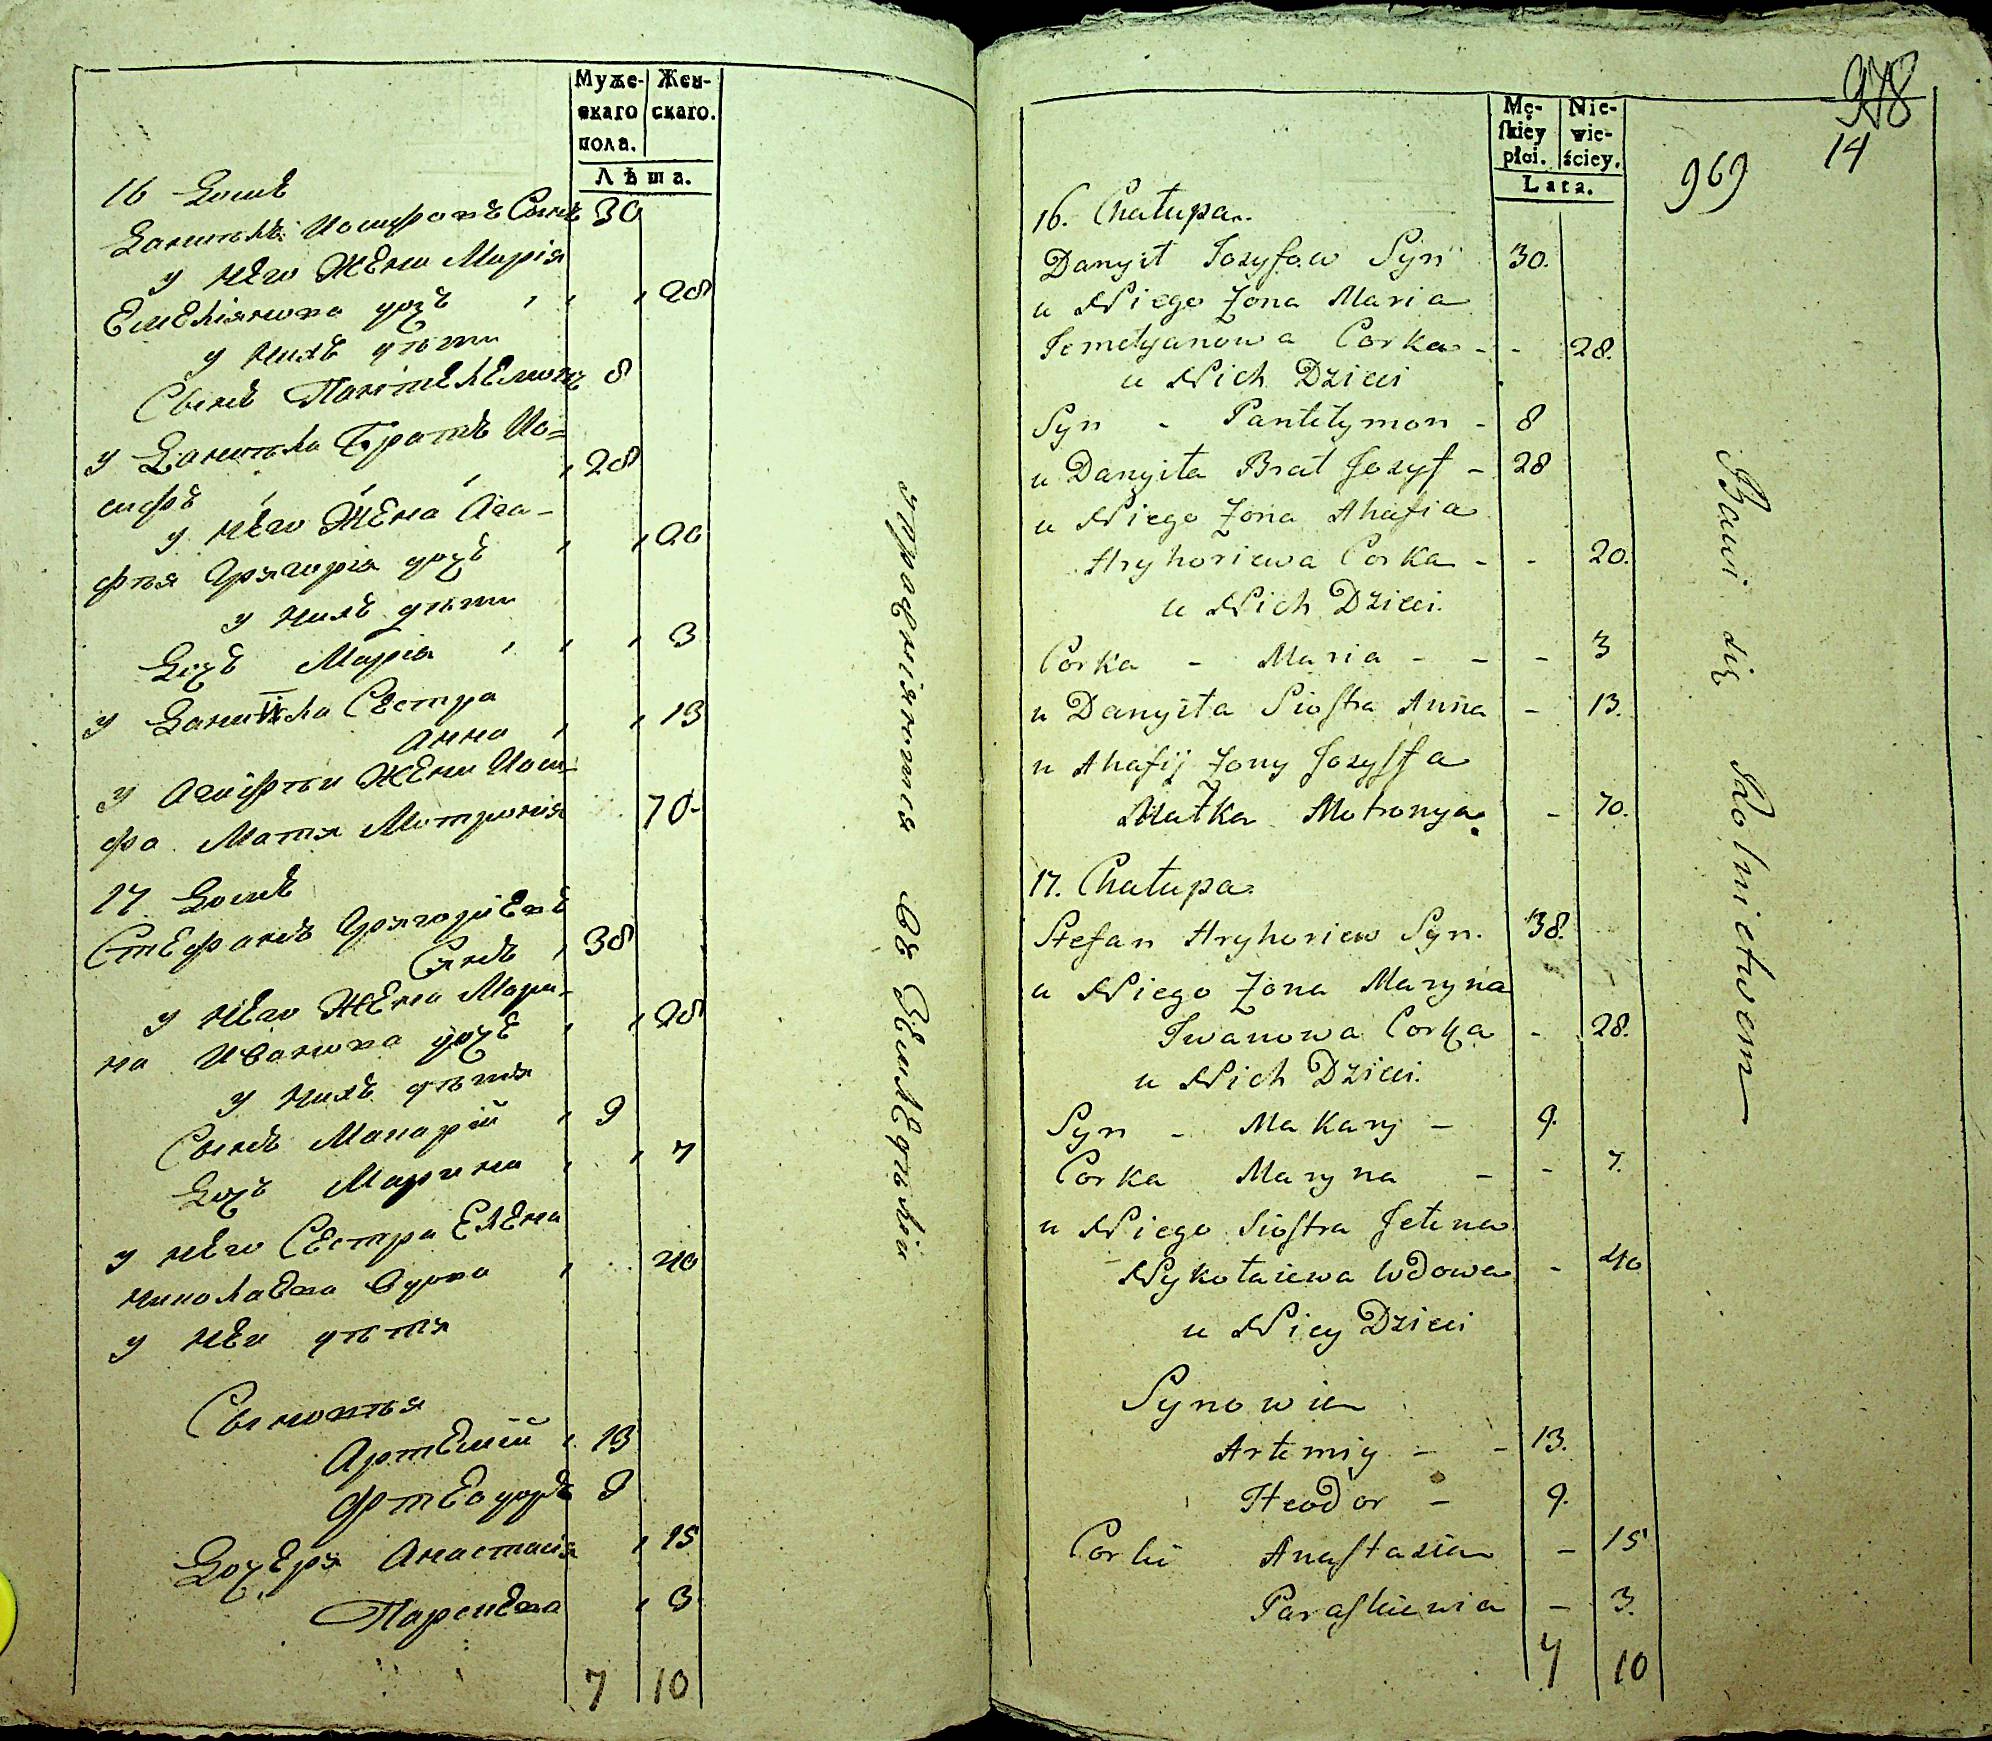 Муже-
скаго
пола.
Жен-
скаго.
Лѣта.
16 Домъ
Данилъ Иосифовъ Сынъ 30
у него Жена Марія
Емеліянова дочъ 28
у нихъ дѣти
Сынъ Пантелемонъ 8
у Данила Братъ Ио=
сифъ 28
у него Жена Ага-
фѣя Григорія дочъ 20
у нихъ дѣти
Дочъ Марія 3
у Данила Сестра
Анна 13
у Агафѣи Жены Иоси-
фа Матя Мотронія 70
17 Домъ
Стефанъ Григоріевъ
Синъ 38
у него Жена Мари-
на Иванова дочъ 28
у нихъ дѣтя
Сынъ Макарій 9
Дочъ Марина 7
у него Сестра Елена
Николаева вдова 40
у неи дѣтя
Сыновья
Артемій 13
Фтеодоръ 9
Дочеря Анастасія 15
Парскева 3
7 10
упражняются въ Земледѣліи
978
14
969
Mę-
skiey
płci.
Nie-
wie-
ściey.
Lata.
16. Chałupa.
Danyił Jozyfow Syn 30.
u Niego Żona Maria
Jemelyanowa Corka - - 28.
u Nich Dzieci
Syn - Pantelymon - 8
u Danyiła Brat Jozyf - 28
u Niego Żona Ahafia
Hryhoriewa Corka - - 20.
u Nich Dzieci.
Corka - Maria - - - 3
u Danyiła Siostra Anna - 13.
u Ahafij Żony Jozyffa
Matka Motronya - 70.
17. Chałupa.
Stefan Hryhoriew Syn. 38.
u Niego Żona Maryna
Iwanowa Corka - 28.
u Nich Dzieci.
Syn - Makary - 9.
Corka Maryna - - 7.
u Niego Siostra Jelena
Nykołaiewa Wdowa - 40
u Niey Dzieci
Synowie
Artemiy - - 13.
Tteodor - 9.
Corki Anastazia - 15
Paraskiewia - 3.
7 10
Bawi się Rolnictwem